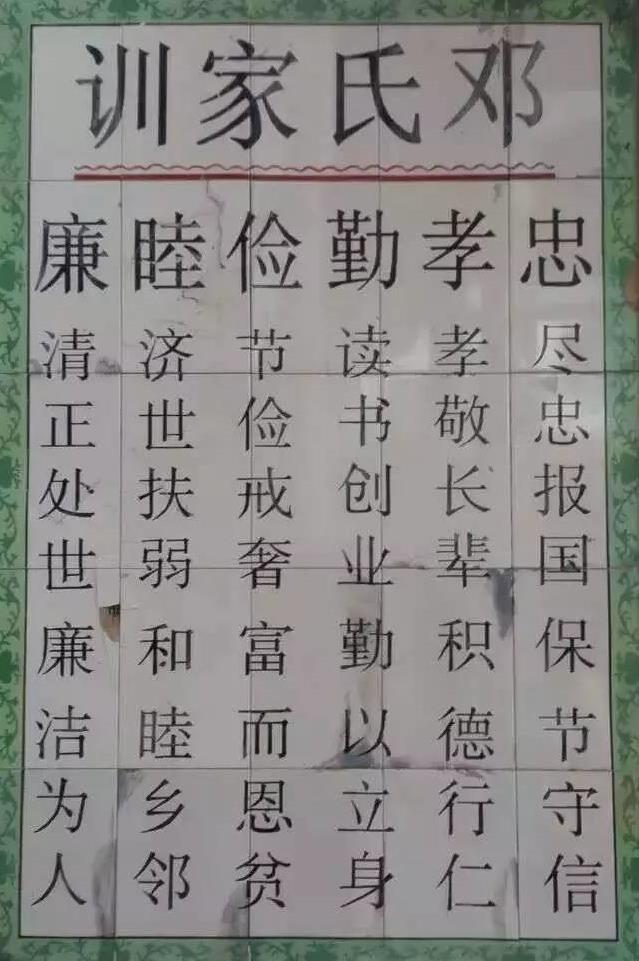 邓氏家训
忠 尽忠报国保节守信
孝 孝敬长辈积德行仁
勤 读书创业勤以立身
俭 节俭戒奢富而恩贫
睦 济世扶弱和睦乡邻
廉 清正处世廉洁为人